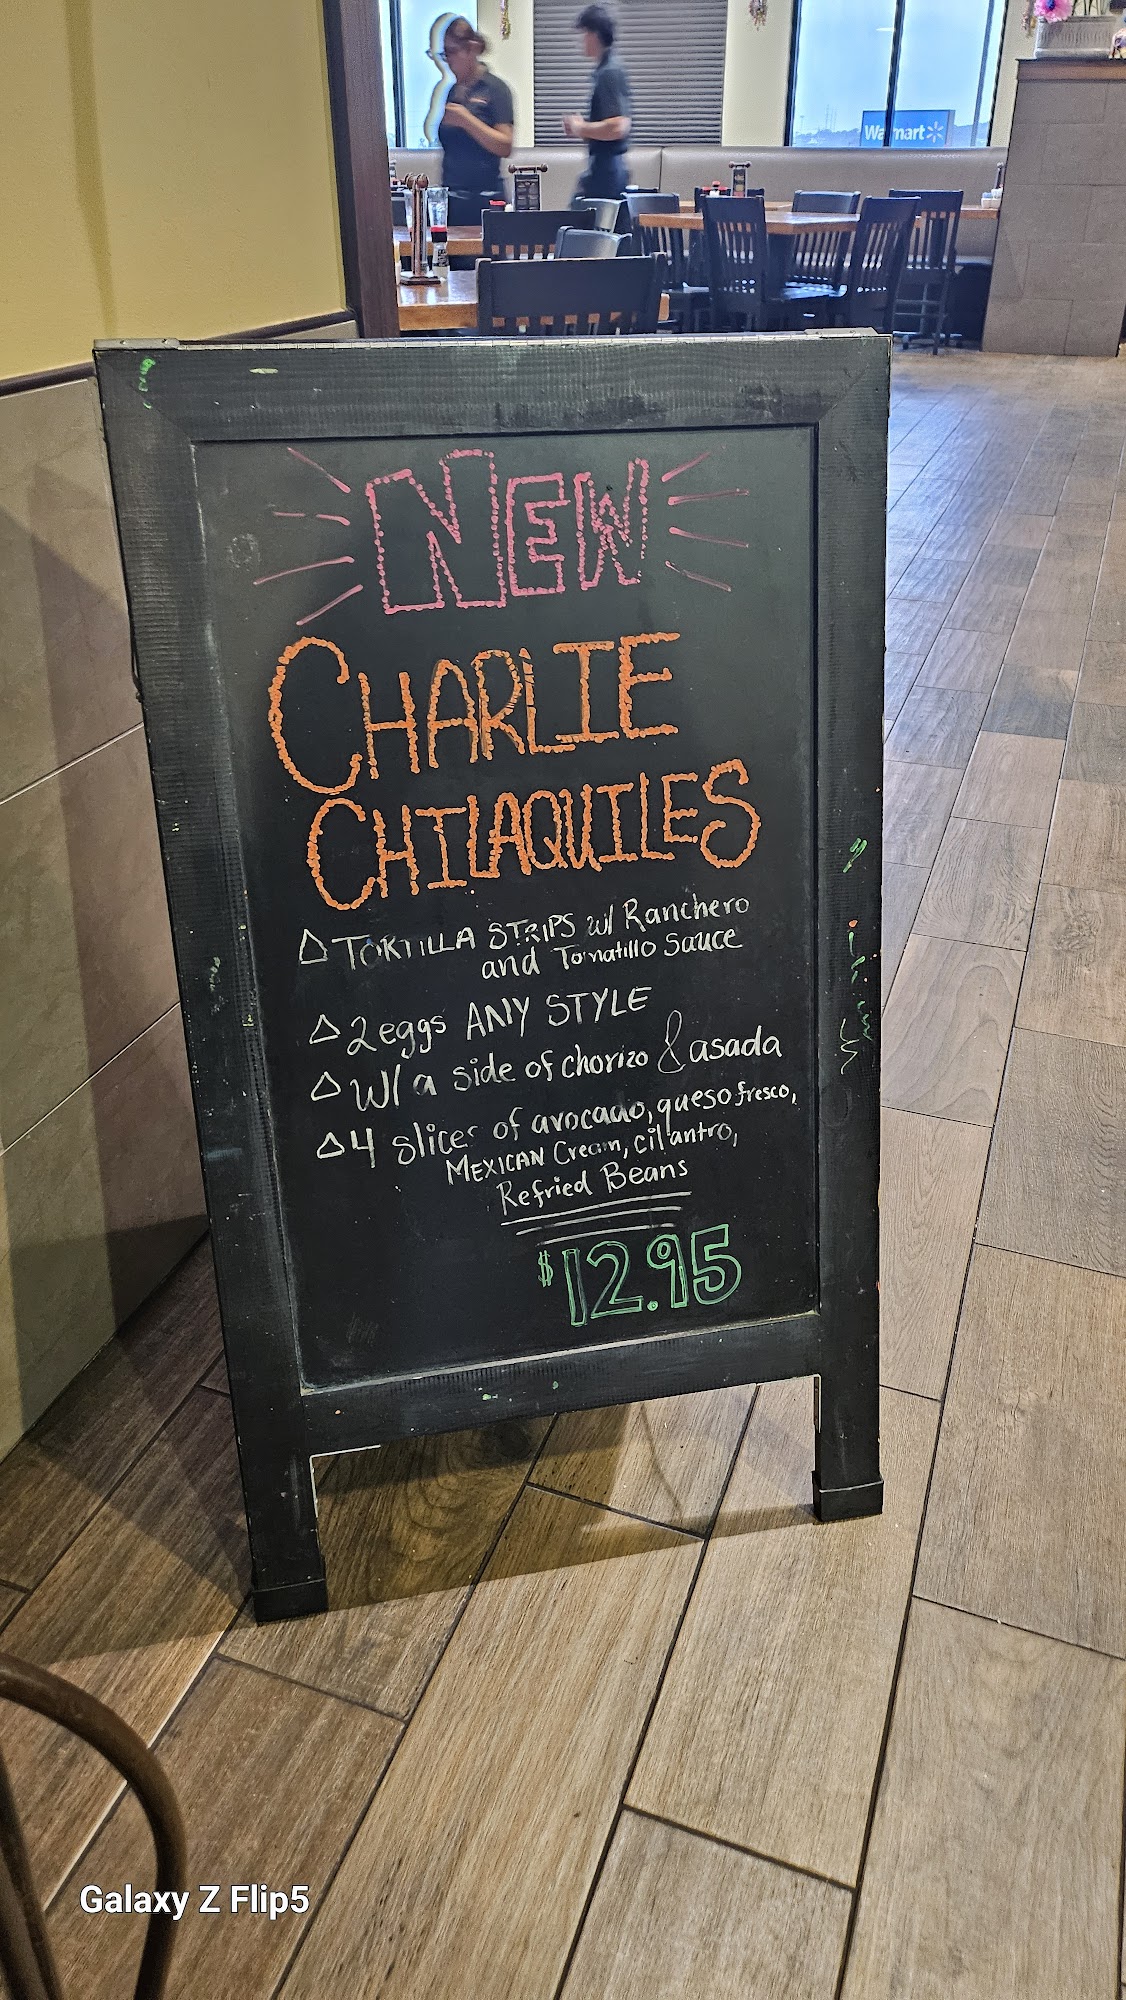 Walmart
NEW
CHARLIE
CHILAQUILES
TORTILLA STRIPS w/ Ranchero
and Tomatillo Sauce
2 eggs ANY STYLE
W/ a side of chorizo & asada
4 slices of avocado, queso fresco,
MEXICAN Cream, cilantro,
Refried Beans
$12.95
Galaxy Z Flip5